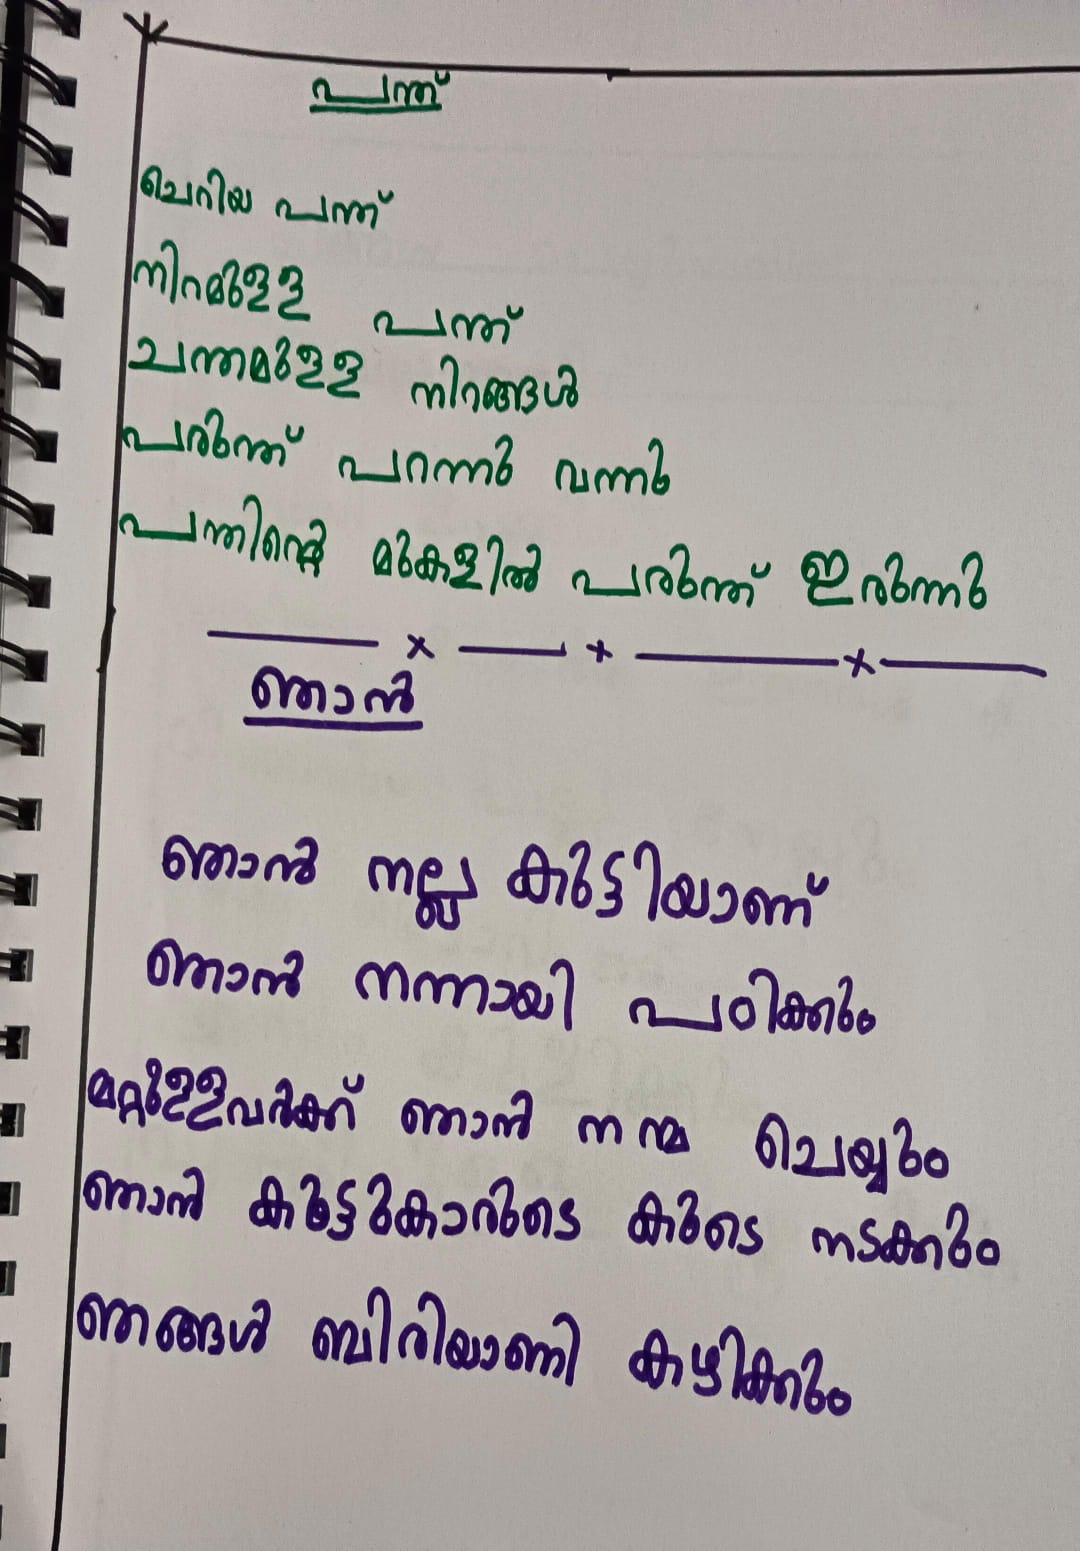 പന്ത്
ചെറിയ പന്ത്
നിറമുള്ള പന്ത്
ചന്തമുള്ള നിറങ്ങൾ
പരുന്ത് പറന്നു വന്നു
പന്തിന്റെ മുകളിൽ പരുന്ത് ഇരുന്നു
ഞാൻ
ഞാൻ നല്ല കുട്ടിയാണ്
ഞാൻ നന്നായി പഠിക്കും
മറ്റുള്ളവർക്ക് ഞാൻ നന്മ ചെയ്യും
ഞാൻ കൂട്ടുകാരുടെ കൂടെ നടക്കും
ഞങ്ങൾ ബിരിയാണി കഴിക്കും